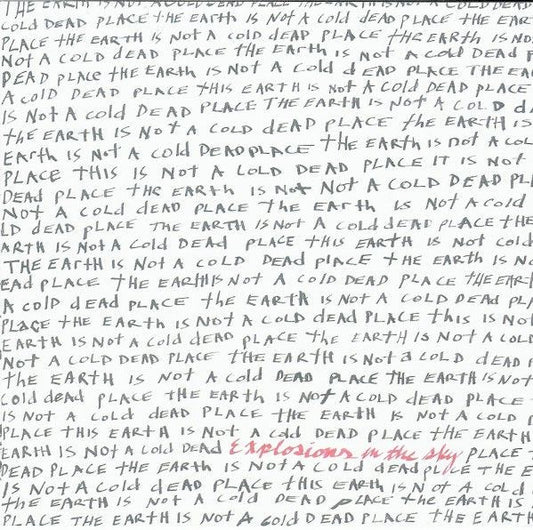 THE EARTH IS NOT A COLD DEAD PLACE THE EARTH IS NOT A COLD DEAD
COLD DEAD PLACE THE EARTH IS NOT A cold deAd PLACE tHE EAR
PLACE tHE EARTH IS NOt A cold deAP PLACE tHE EARTH IS NO
NOt A COLD DEAD PLACE THE EArth IS Not A cold dEAD P
DEAD plAce the EArth is Not A Cold d EAD PLACE THE EA
A colD DEAD PLACE tHIS EARTH IS Not A Cold DEAD PLACE
IS Not A cold DEAD PLACE THE EARth IS NOt A COLD d
tHE EARTH IS NOt A COLD dEAD PLACE tHE EARTH IS
EArth IS Not A cold DEADPLACE tHE EARth IS not A COL
PLACE THIS IS NOT A LOLD DEAD PLACE IT IS NOT
DEAd PLACE tHE EARtH IS Not Not A COLD DEAD PL
NOt A cold dEAD PLACE the EArth IS NOtA cold
LD dEAD plAcE THE EARtH IS Not A Cold deAD PLACE tHE
ARTH IS NOt A Cold DEAd PLACE tHIS EARtH IS NOt Cold
THE EArtH IS Not A coLD DEAd plAcE tHE EARTH IS N
EAd PLACE tHE EARTHIS NOt A COlD DEAD PLACE tHE EAR
A cold d EAD PLACE the EARTh IS NOt A COLD DEAd PL
PLAcE tHE EARTH IS NOt A coLD dEAD PLACE this is NO
EARTH IS NOt A Cold deAd PLACE the EARTH IS NOt A COL
NOt A cOLD DEAD PLACE tHE EARTH IS Not a COLD dEAD
the EARTH IS NOT A cold DEAD PLACE THE EARTH IS NOT
COld deAd PLACE the EARTH IS NOt A COLd DEAD PLACE
IS NOT A cold dEAD PLACE THE EARTH IS NOt A COLD
PLACE THIS EARTH IS NOt A cold DEAD PLACE tHE EARTH
EARTH IS NOt A Cold DEAD Explosions in the sky PLACE
DEAD PLACE tHE EARTH IS NOt A COLD dEAd plACE tHE E
IS NOt A Cold DEAD PLACE tHIS EARTH IS NOt A COLd
the EARTH IS NOt A cold DEAD PLACE THE EARTH IS
PLACE THE EARTH IS NOt A coldDEAD PLACE THE EARTH